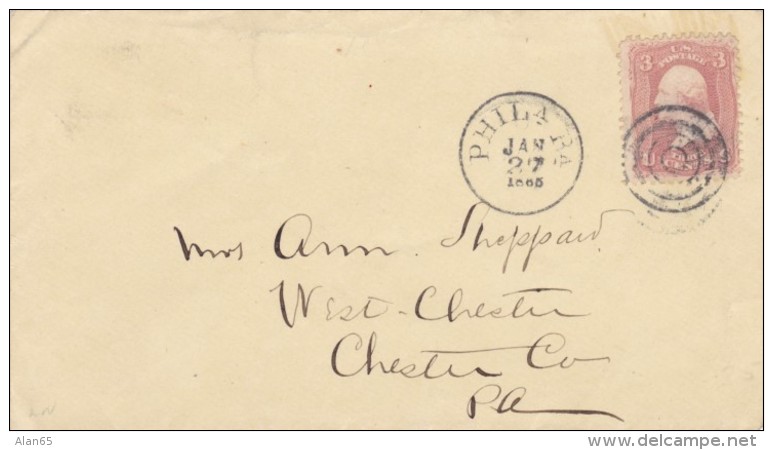 3 U.S. 3
POSTAGE
PHILA. PA.
JAN
27
1865
Mrs Ann Sheppard
West-Chester
Chester Co
PA
Alan65
www.delcampe.net